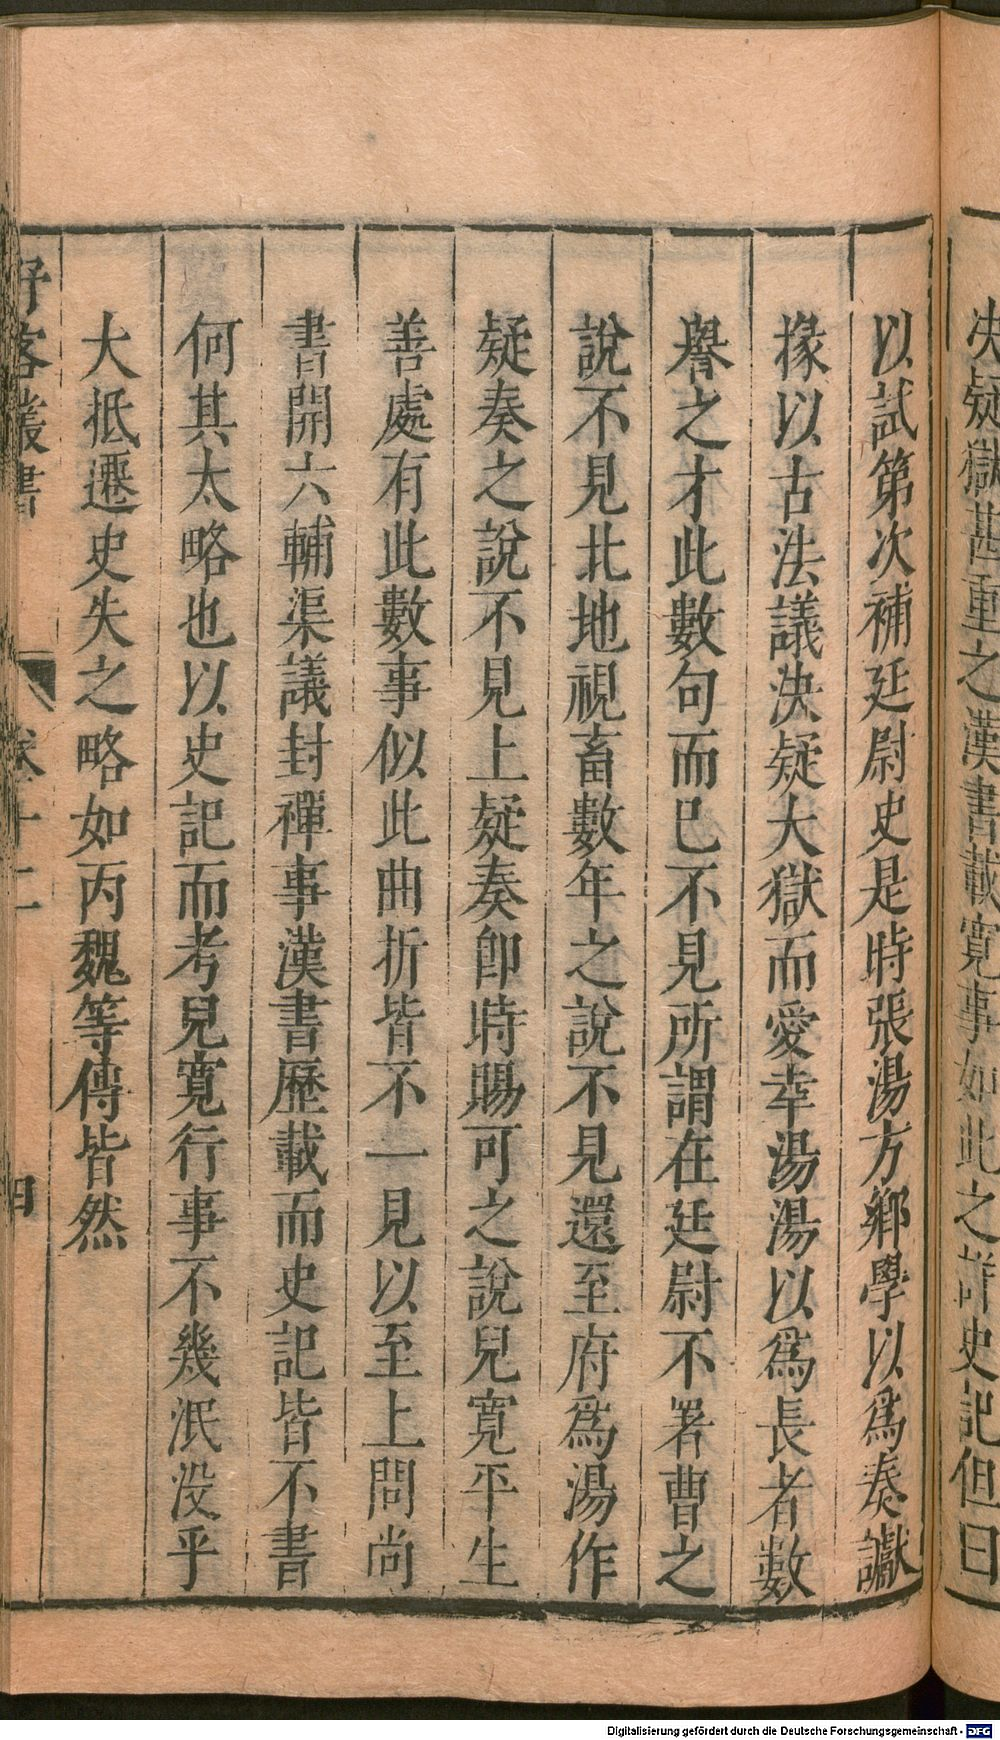 决疑獄甚重之漢書載寬事如此之詳史記但曰
以試第次補廷尉史是時張湯方鄉學以爲奏讞
掾以古法議決疑大獄而愛幸湯湯以爲長者數
譽之才此數句而巳不見所謂在廷尉不署曹之
說不見北地視畜數年之說不見還至府爲湯作
疑奏之說不見上疑奏卽時賜可之說兒寬平生
善處有此數事似此曲折皆不一見以至上問尚
書開六輔渠議封禪事漢書歷載而史記皆不書
何其太略也以史記而考兒寬行事不幾泯没乎
大抵遷史失之略如丙魏等傳皆然
野客叢書 卷十二 四
Digitalisierung gefördert durch die Deutsche Forschungsgemeinschaft - DFG